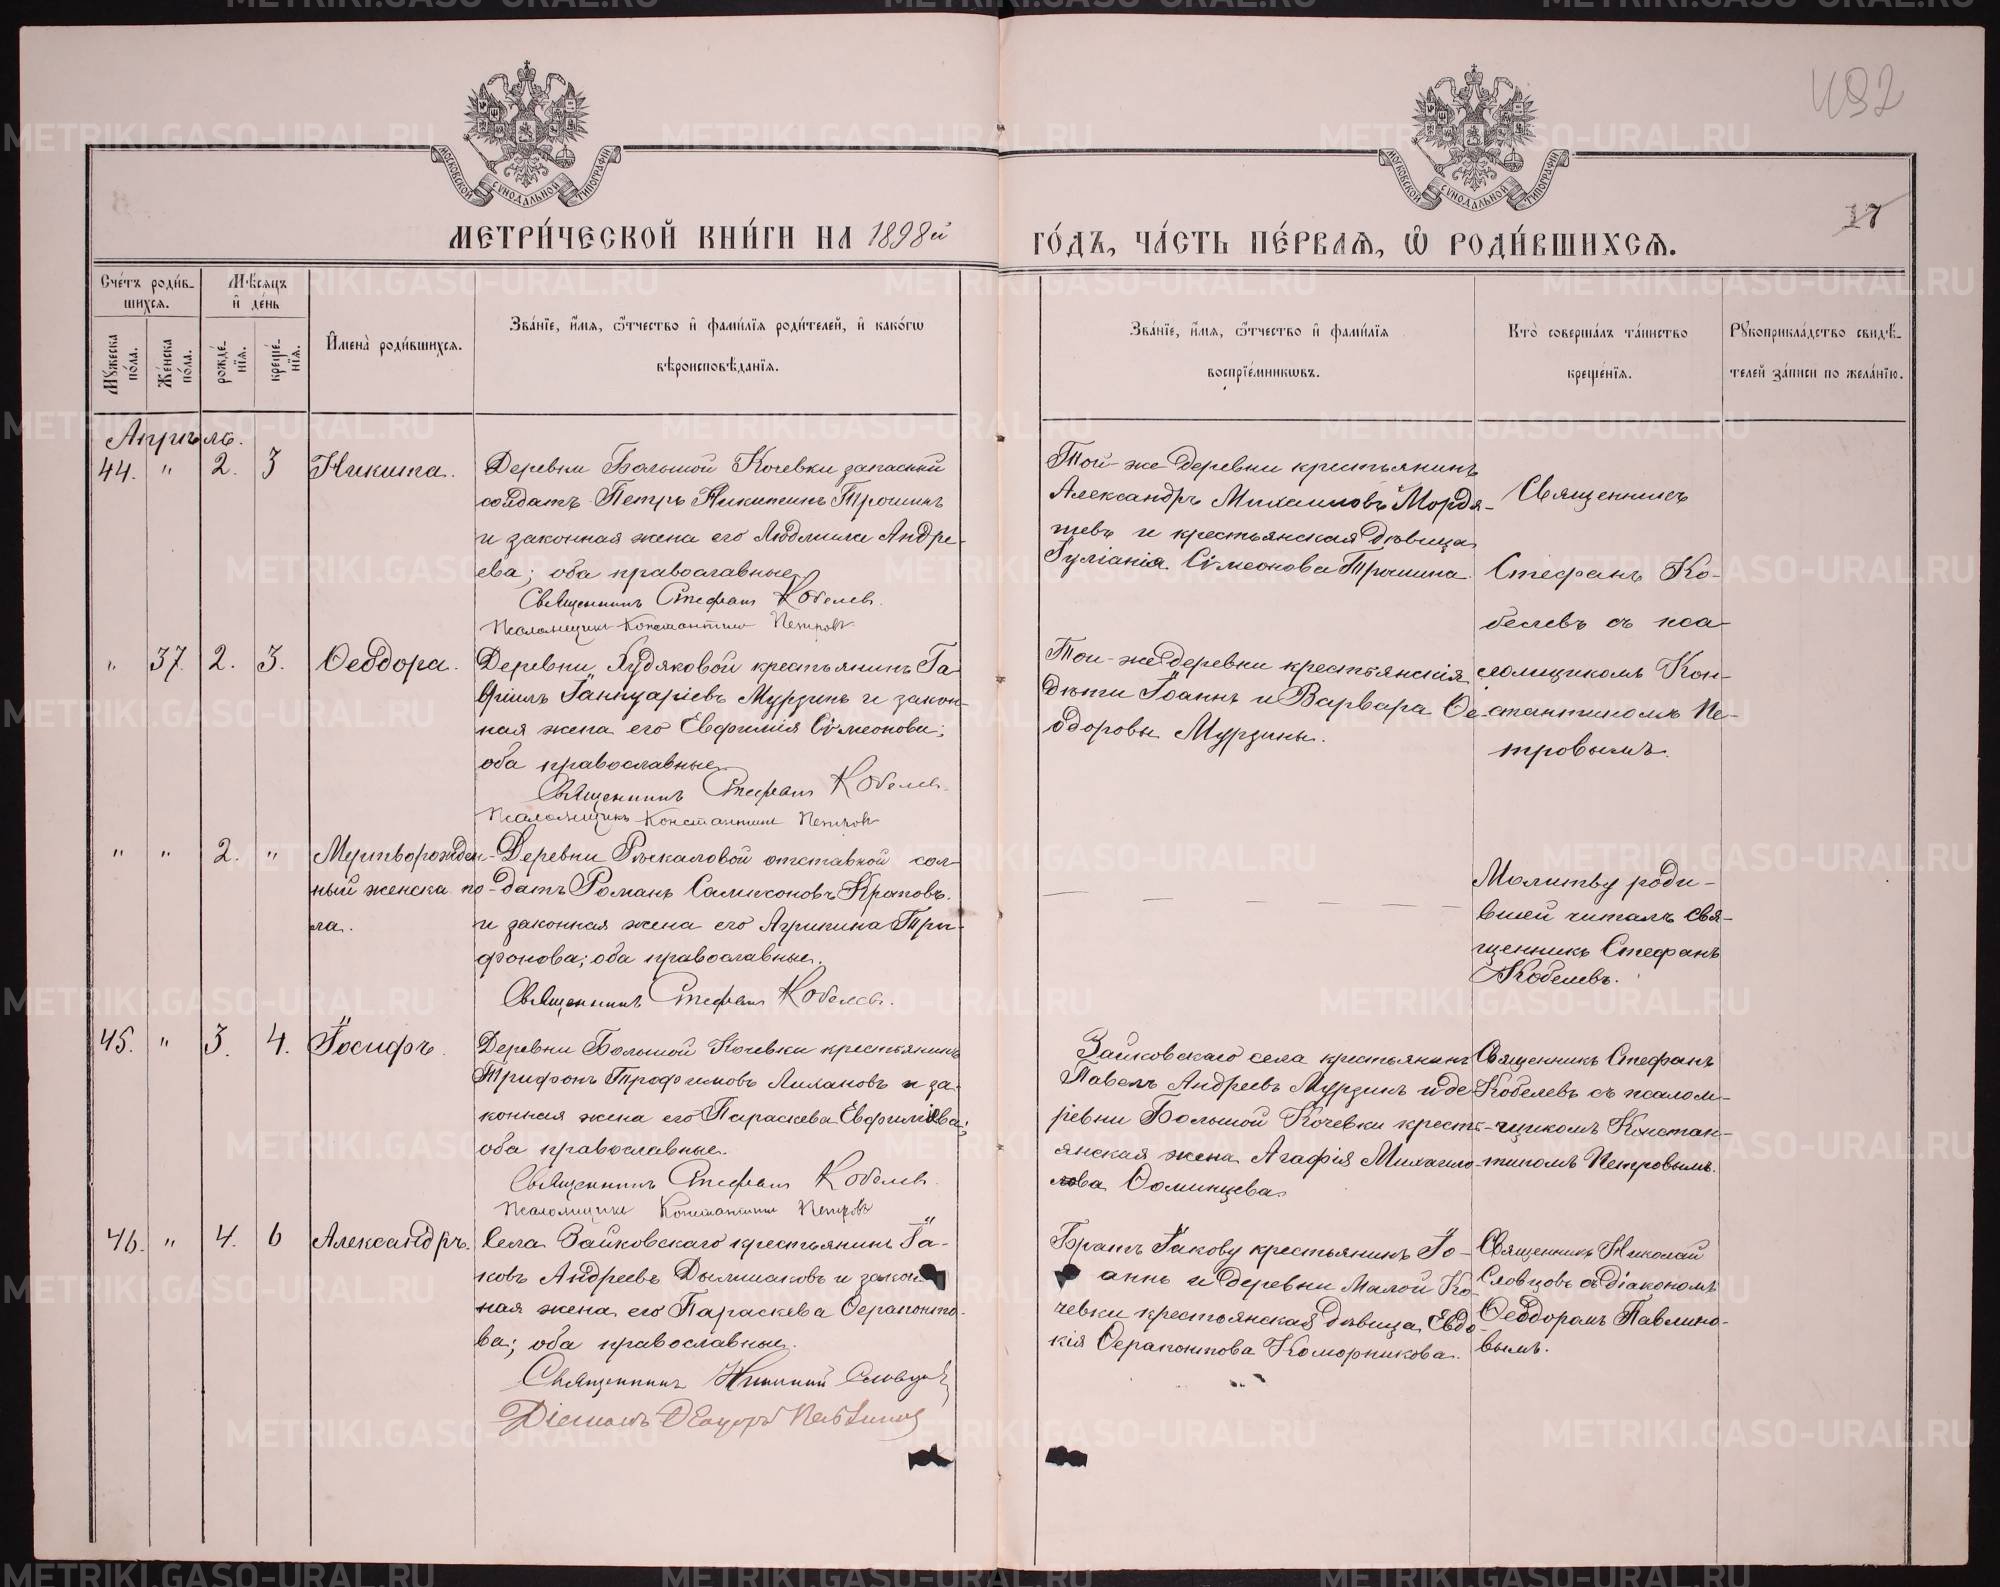 492
МОСКОВСКОЙ СѴНОДАЛЬНОЙ ТИПОГРАФІИ
МОСКОВСКОЙ СѴНОДАЛЬНОЙ ТИПОГРАФІИ
17
МЕТРИ́ЧЕСКОЙ КНИ́ГИ НА 1898й
ГО́ДЪ, ЧА́СТЬ ПЕ́РВАѦ, Ѡ РОДИ́ВШИХСѦ.
Сче́тъ роди́в-
шихсѧ.
Мꙋжеска по́ла.
Же́нска по́ла.
Мѣ́сѧцъ
и҆ де́нь
рожде́нїѧ.
креще́нїѧ.
И҆мена̀ роди́вшихсѧ.
Зва́нїе, и҆́мѧ, ѻ҆́тчество и҆ фами́лїѧ роди́телей, и҆ како́гѡ
вѣроисповѣ́данїѧ.
Зва́нїе, и҆́мѧ, ѻ҆́тчество и҆ фами́лїѧ
воспрїе́мникѡвъ.
Кто̀ соверша́лъ та́инство
креще́нїѧ.
Рꙋкоприкла́дство свидѣ́-
телей за́писи по жела́нїю.
Апрѣль.
44. " 2. 3 Никита.
Деревни Большой Кочевки запасный
солдатъ Петръ Никитинъ Трошинъ
и законная жена его Людмила Андре-
ева; оба православные.
Священникъ Стефанъ Кобелев.
Псаломщикъ Константинъ Петровъ
Той-же деревни крестьянинъ
Александръ Михаиловъ Мордя-
шевъ и крестьянская дѣвица
Іуліанія Сѵмеонова Трошина.
Священникъ
Стефанъ Ко-
белевъ съ пса-
ломщикомъ Кон-
стантиномъ Пе-
тровымъ.
" 37. 2. 3. Ѳеодора.
Деревни Худяковой крестьянинъ Га-
вріилъ Іаннуаріевъ Мурзинъ и закон-
ная жена его Евфимія Сѵмеонова;
оба православные.
Священникъ Стефанъ Кобелев.
Псаломщикъ Константинъ Петровъ
Той-же деревни крестьянскія
дѣти Іоаннъ и Варвара Ѳе-
одоровы Мурзины.
" " 2. " Мертворожден-
ный женска по-
ла.
Деревни Рѣкаловой отставной сол-
датъ Романъ Самсоновъ Краповъ
и законная жена его Агрипина Три-
фонова; оба православные.
Священникъ Стефанъ Кобелев.
Молитву роди-
вшей читалъ свя-
щенникъ Стефанъ
Кобелевъ.
45. " 3. 4. Іосифъ.
Деревни Большой Кочевки крестьянинъ
Трифонъ Трофимовъ Лихановъ и за-
конная жена его Параскева Евфиміева;
оба православные.
Священникъ Стефанъ Кобелев.
Псаломщикъ Константинъ Петровъ
Зайковскаго села крестьянинъ
Павелъ Андреевъ Мурзинъ и де-
ревни Большой Кочевки кресть-
янская жена Агафія Михаило-
ва Ѳоминцева.
Священникъ Стефанъ
Кобелевъ съ псалом-
щикомъ Констан-
тиномъ Петровымъ.
46. " 4. 6 Александръ.
Села Зайковскаго крестьянинъ Іа-
ковъ Андреевъ Дымшаковъ и закон-
ная жена его Параскева Ѳерапонто-
ва; оба православные.
Священникъ Николай Словцов
Діаконъ Ѳеодоръ Павлинов
Братъ Іакову крестьянинъ Іо-
аннъ и деревни Малой Ко-
чевки крестьянская дѣвица Евдо-
кія Ѳерапонтова Коморникова.
Священникъ Николай
Словцовъ съ діакономъ
Ѳеодоромъ Павлино-
вымъ.
METRIKI.GASO-URAL.RU